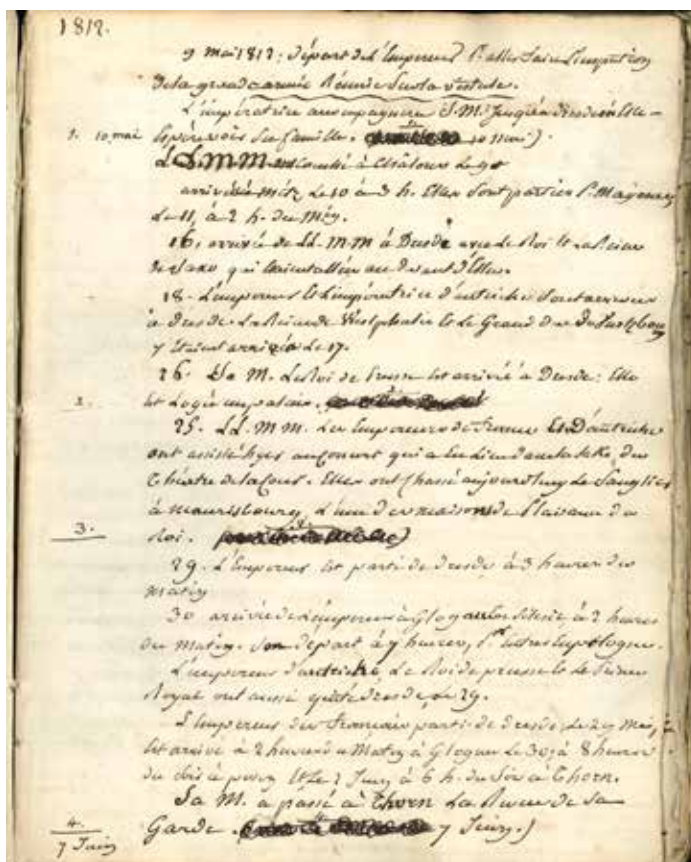 1812.
9 mai 1812: départ de l'Empereur Pr aller faire l'inspection
de la grande armée Réunie sur la vistule.
L'impératrice accompagnera S.M. jusqu'à dresde où Elle
1. 10 mai espère voir sa famille. 10 mai).
LL.MM. ont couché à Châlons Le 9
arrivées à métz Le 10 à 3 h. Elles sont parties Pr. Mayence
Le 11, à 2 h. du Matin.
16, arrivée de LL.MM à Dresde avec le Roi et La Reine
de Saxe qui étaient allés au devant d'Elles.
18. L'empereur et L'impératrice d'autriche sont arrivés
à Dresde. La Reine de Westphalie et Le Grand Duc de Wurtzbourg
y étaient arrivés Le 17.
26. Sa M. Le Roi de Prusse est arrivé à Dresde: Elle
est Logée au palais.
25. LL.MM. Les Empereurs de France Et D'autriche
ont assisté hyer au concert qui a eu Lieu dans la salle du
théâtre de la Cour. Elles ont chassé aujourd'huy Le Sanglier
à maurisbourg, L'une des maisons de Plaisance du
3. Roi.
29. L'Empereur est parti de dresde à 3 heures du
matin
30 arrivée de L'empereur à Glogau en silésie, à 2 heures
du Matin. Son départ à 9 heures, Pr. entrer en pologne.
L'empereur d'autriche, Le Roi de prusse et Le Prince
Royal ont aussi quitté dresde, Le 29.
L'Empereur des français parti de dresde, Le 29 Mai,
est arrivé à 2 heures du Matin à Glogau Le 30, à 8 heures
du soir à posen Et Le 2 Juin à 6 h. du soir à Thorn.
Sa M. a passé à Thorn La Revue de Sa
4. Garde. 7 Juin.)
7 Juin